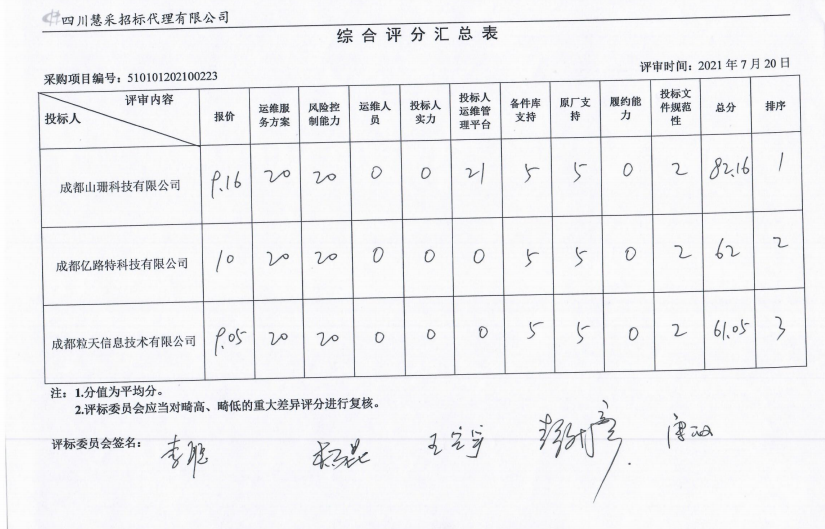 四川慧采招标代理有限公司
综合评分汇总表
采购项目编号：510101202100223
评审时间：2021年7月20日
评审内容
投标人
报价
运维服务方案
风险控制能力
运维人员
投标人实力
投标人运维管理平台
备件库支持
原厂支持
履约能力
投标文件规范性
总分
排序
成都山珊科技有限公司 9.16 20 20 0 0 21 5 5 0 2 82.16 1
成都亿路特科技有限公司 10 20 20 0 0 0 5 5 0 2 62 2
成都粒天信息技术有限公司 9.05 20 20 0 0 0 5 5 0 2 61.05 3
注：1.分值为平均分。
2.评标委员会应当对畸高、畸低的重大差异评分进行复核。
评标委员会签名：